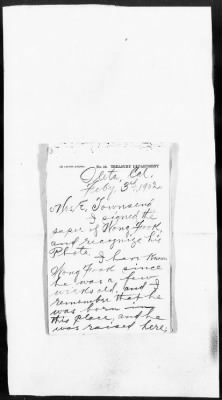 TREASURY DEPARTMENT
Oleta, Cal.
Feby. 3rd, 1902
Mr. E. Townsend
I signed the
paper of Wong Fook,
and recognize his
Photo. I have known
Wong Fook since
he was a few
weeks old, and I
remember that he
was born in
this place, and he
was raised here,